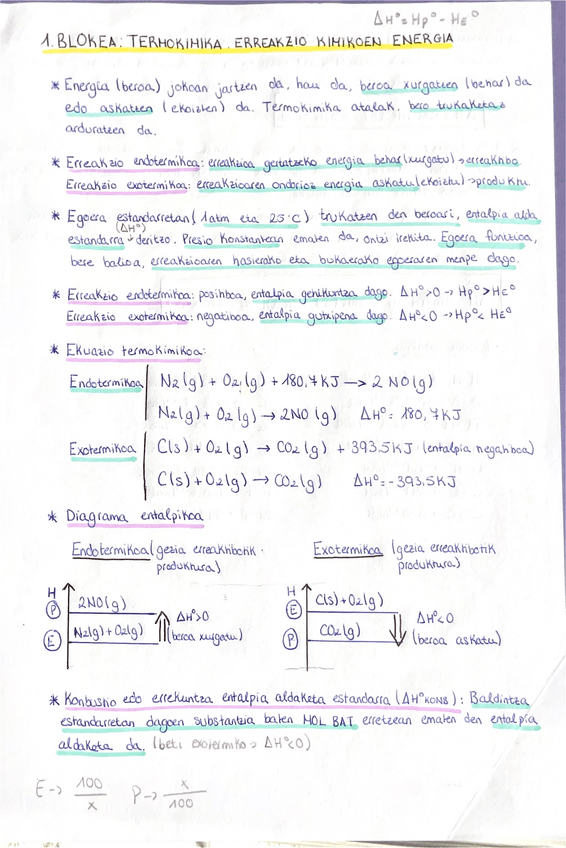 ΔHº = Hpº - HEº
1. BLOKEA: TERMOKIMIKA. ERREAKZIO KIMIKOEN ENERGIA
* Energia (beroa) jokoan jartzen da, hau da, beroa xurgatzen (behar) da
edo askatzen (ekoizten) da. Termokimika atalak, bero trukaketaz
arduratzen da.
* Erreakzio endotermikoa: erreakzioa gertatzeko energia behar (xurgatu) → erreaktibo.
Erreakzio exotermikoa: erreakzioaren ondorioz energia askatu (ekoiztu) → produktu.
* Egoera estandarretan (1atm eta 25ºC) trukatzen den beroari, entalpia alda
(ΔHº)
estandarra deritzo. Presio konstantean ematen da, ontzi irekita. Egoera funtzioa,
bere balioa, erreakzioaren hasierako eta bukaerako egoeraren menpe dago.
* Erreakzio endotermikoa: positiboa, entalpia gehikuntza dago. ΔHº>0 → Hpº > HEº
Erreakzio exotermikoa: negatiboa, entalpia gutxipena dago. ΔHº<0 → Hpº < HEº
* Ekuazio termokimikoa:
Endotermikoa N2(g) + O2(g) + 180,7KJ → 2 NO(g)
N2(g) + O2(g) → 2NO (g) ΔHº = 180,7KJ
Exotermikoa C(s) + O2(g) → CO2(g) + 393,5KJ (entalpia negatiboa)
C(s) + O2(g) → CO2(g) ΔHº = -393,5KJ
* Diagrama entalpikoa
Endotermikoa (gezia erreaktibotik Exotermikoa (gezia erreaktibotik
produktura) produktura)
H H
P 2NO(g) E C(s) + O2(g)
ΔHº>0 ΔHº<0
E N2(g) + O2(g) (beroa xurgatu) P CO2(g) (beroa askatu)
* Konbustio edo errekuntza entalpia aldaketa estandarra (ΔHºKONB): Baldintza
estandarretan dagoen substantzia baten MOL BAT erretzean ematen den entalpia
aldaketa da. (beti exotermiko → ΔHº<0)
E → 100/x P → x/100